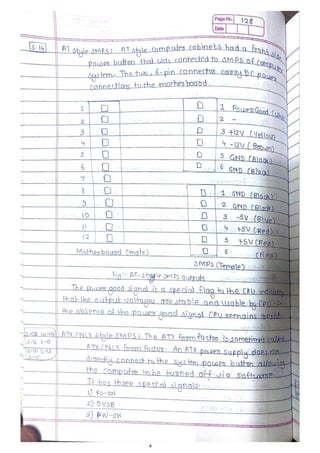 Page No. 128
Date
S-14
AT style SMPS: AT style computer cabinets had a front side
power button that was connected to SMPS of computer
system. The two, 6-pin connector carry DC power
connections to the motherboard.
1 1 Power Good
2 2 -
3 3 +12V (Yellow)
4 4 -12V (Brown)
5 5 GND (Black)
6 6 GND (Black)
7
8 1 GND (Black)
9 2 GND (Black)
10 3 -5V (Blue)
11 4 +5V (Red)
12 5 +5V (Red)
Motherboard (male) 6 (Red)
SMPS (Female)
Fig:- AT-style SMPS outputs
The power good signal is a special flag to the CPU
that the output voltages are stable and usable by CPU
the absence of the power good signal CPU remains
ATX/NLX style SMPS: The ATX form factor is sometimes called
ATX/NLX form factor. An ATX power supply does not
directly connect to the system power button
the computer to be turned off via software
It has three special signals:
1) PS-ON
2) 5VSB
3) PW-OK
4